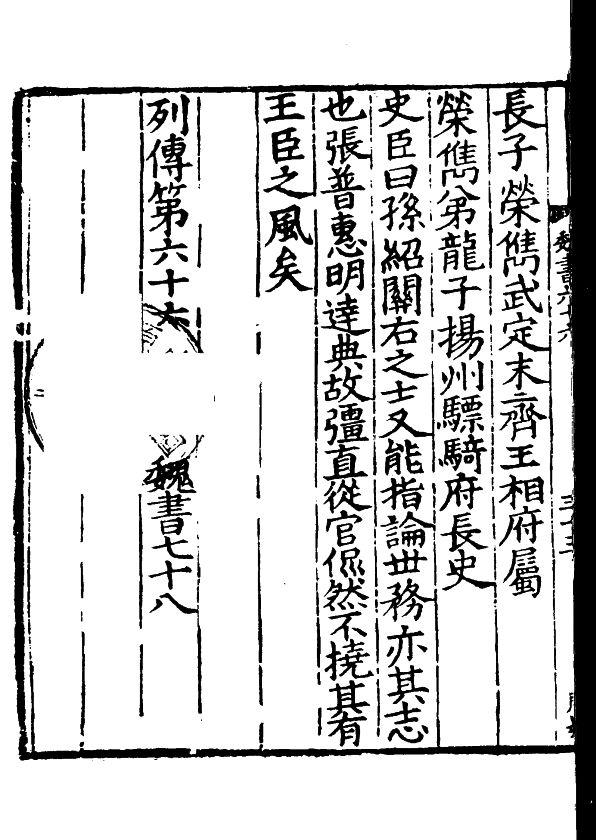 長子榮儁武定末齊王相府屬
榮儁弟龍子揚州驃騎府長史
史臣曰孫紹關右之士又能指論世務亦其志
也張普惠明達典故彊直從官侃然不撓其有
王臣之風矣
列傳第六十六 魏書七十八